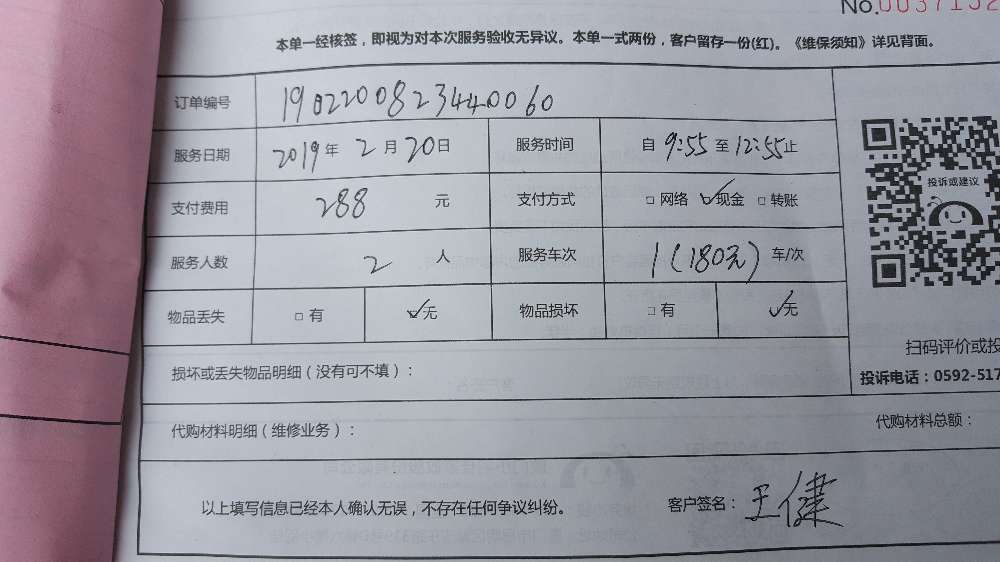 No.0037152
本单一经核签，即视为对本次服务验收无异议。本单一式两份，客户留存一份(红)。《维保须知》详见背面。
订单编号 1902200823440060
服务日期 2019年2月20日 服务时间 自9:55至12:55止
支付费用 288 元 支付方式 □网络 ☑现金 □转账
服务人数 2 人 服务车次 1(180元) 车/次
物品丢失 □有 ☑无 物品损坏 □有 ☑无
投诉或建议
扫码评价或投
损坏或丢失物品明细（没有可不填）：
投诉电话：0592-517
代购材料明细（维修业务）：
代购材料总额：
以上填写信息已经本人确认无误，不存在任何争议纠纷。 客户签名：王健